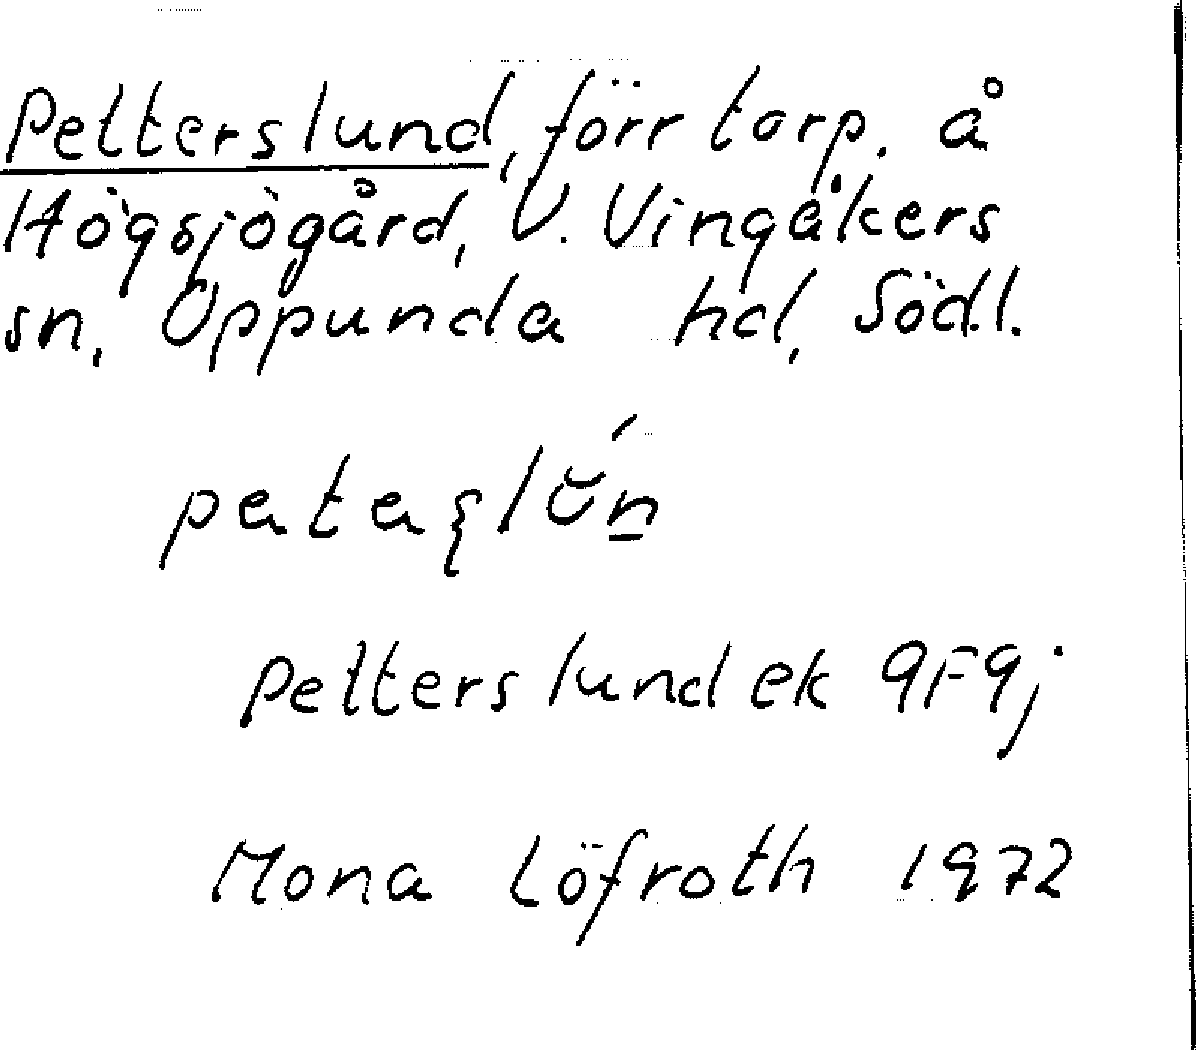 Petterslund, förr torp. å
Högsjögård, V. Vingåkers
sn, Oppunda hd, Södl.
Petterslund ek 9F9j
Mona Löfroth 1972